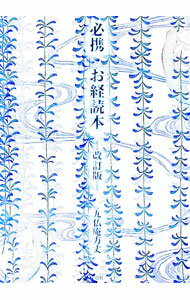 必携 お経読本
改訂版
九仏庵方丈